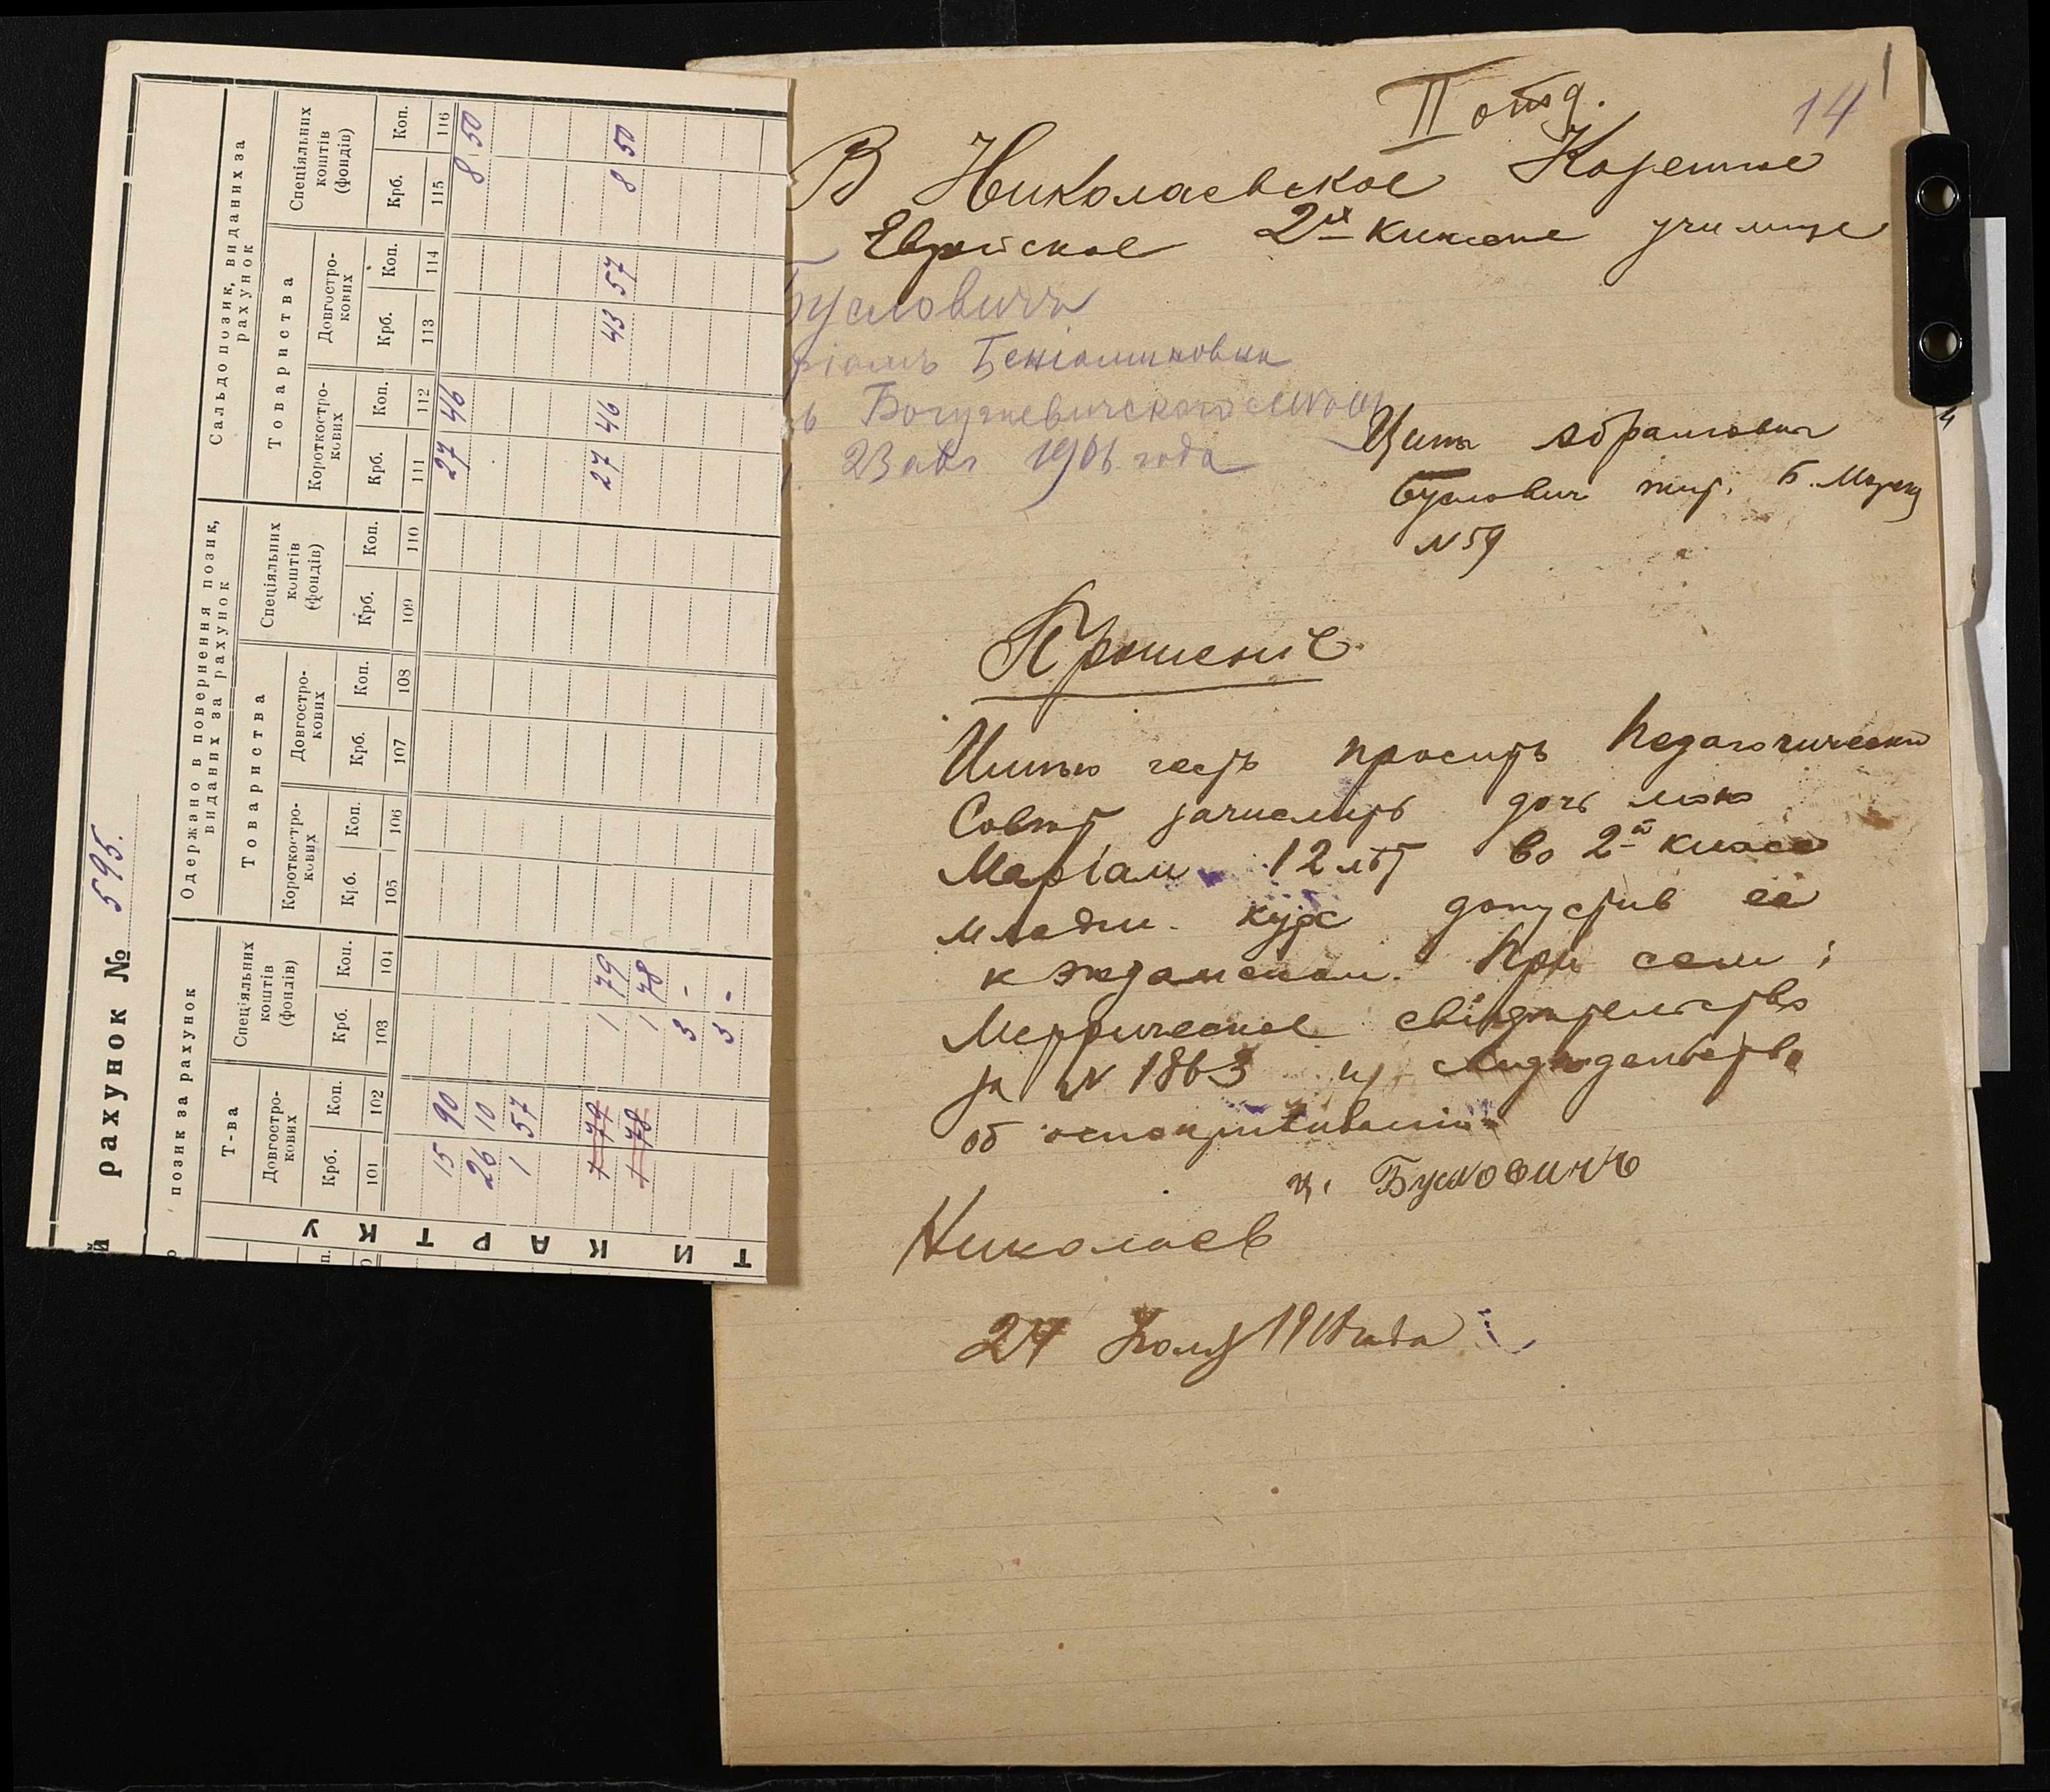 рахунок № 595.
позик за рахунок
Т-ва
Довгостро-
кових
Спеціяльних
коштів
(фондів)
Крб. Коп. Крб. Коп.
101 102 103 104
15 90
26 10
1 57
1 79 1 79
1 78 1 78
3 -
3 -
Одержано в повернення позик,
виданих за рахунок
Товариства
Короткостро-
кових
Довгостро-
кових
Спеціяльних
коштів
(фондів)
Крб. Коп. Крб. Коп. Крб. Коп.
105 106 107 108 109 110
Сальдо позик, виданих за
рахунок
Товариства
Короткостро-
кових
Довгостро-
кових
Спеціяльних
коштів
(фондів)
Крб. Коп. Крб. Коп. Крб. Коп.
111 112 113 114 115 116
27 46 8 50
27 46 43 57 8 50
ТИ КАРТКУ
14
II отд.
В Николаевское Казенное
Еврейское 2х классное училище
Бусловичъ
Беніаминовна
23 авг 1906 года
Абрамовича
Буслович жит. Б. Морск
№ 59
Прошеніе.
Имею честь просить Педагогический
Совет зачислить дочь мою
Маріам 12 лет во 2й класс
младш. курс допустив её
к экзаменам. При сем:
Метрическое свидетельство
за № 1863 и свидетельство
об оспопрививании
ц. Бусловичъ
Николаев